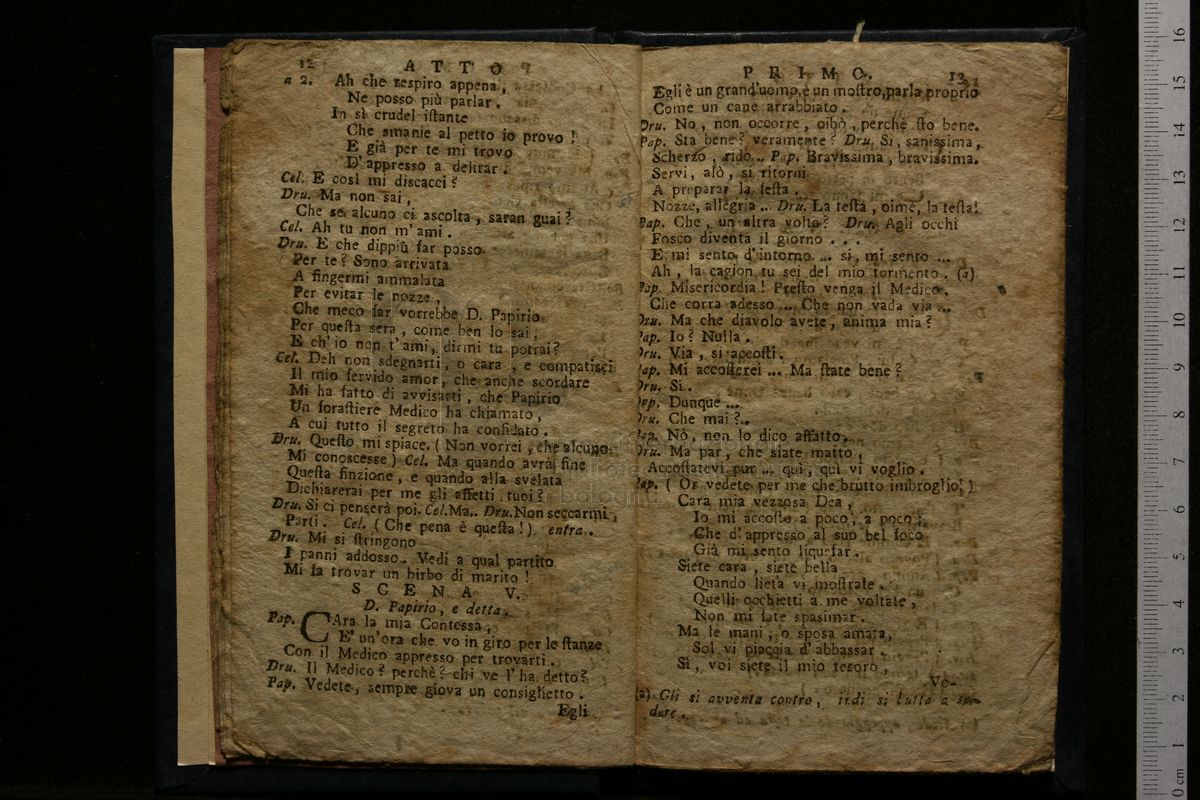 12 ATTO
a 2. Ah che respiro appena,
Ne posso più parlar.
In sì crudel istante
Che smanie al petto io provo!
E già per te mi trovo
D'appresso a delirar.
Cel. E così mi discacci?
Dru. Ma non sai,
Che se alcuno ci ascolta, saran guai?
Cel. Ah tu non m'ami.
Dru. E che dippiù far posso
Per te? Sono arrivata
A fingermi ammalata
Per evitar le nozze,
Che meco far vorrebbe D. Papirio
Per questa sera, come ben lo sai,
E ch'io non t'ami, dirmi tu potrai?
Cel. Deh non sdegnarti, o cara, e compatisci
Il mio fervido amor, che anche scordare
Mi ha fatto di avvisarti, che Papirio
Un forastiere Medico ha chiamato,
A cui tutto il segreto ha confidato.
Dru. Questo mi spiace. (Non vorrei, che alcuno
Mi conoscesse) Cel. Ma quando avrà fine
Questa finzione, e quando alla svelata
Dichiarerai per me gli affetti tuoi?
Dru. Si ci penserà poi. Cel. Ma.. Dru. Non seccarmi,
Parti. Cel. (Che pena è questa!) entra.
Dru. Mi si stringono
I panni addosso. Vedi a qual partito
Mi fa trovar un birbo di marito!
SCENA V.
D. Papirio, e detta.
Pap. CAra la mia Contessa,
E' un'ora che vo in giro per le stanze
Con il Medico appresso per trovarti.
Dru. Il Medico? perchè? chi ve l'ha detto?
Pap. Vedete, sempre giova un consiglietto.
Egli
PRIMO. 13
Egli è un grand'uomo, è un mostro, parla proprio
Come un cane arrabbiato.
Dru. No, non occorre, oibò, perchè sto bene.
Pap. Sta bene? veramente? Dru. Si, sanissima,
Scherzo, rido.. Pap. Bravissima, bravissima.
Servi, alò, si ritorni
A preparar la festa.
Nozze, allegria... Dru. La testa, oimè, la testa!
Pap. Che, un altra volta? Dru. Agli occhi
Fosco diventa il giorno...
E mi sento d'intorno... si, mi sento...
Ah, la cagion tu sei del mio tormento. (a)
Pap. Misericordia! Presto venga il Medico.
Che corra adesso... Che non vada via...
Dru. Ma che diavolo avete, anima mia?
Pap. Io? Nulla.
Dru. Via, si accosti.
Pap. Mi accosterei... Ma state bene?
Dru. Si.
Pap. Dunque...
Dru. Che mai?..
Pap. Nò, non lo dico affatto.
Dru. Ma par, che siate matto,
Accostatevi pur... qui, quì vi voglio.
Pap. (Or vedete per me che brutto imbroglio!)
Cara mia vezzosa Dea,
Io mi accosto a poco, a poco;
Che d'appresso al suo bel foco
Già mi sento liquefar.
Siete cara, siete bella
Quando lieta vi mostrate.
Quelli occhietti a me voltate,
Non mi fate spasimar.
Ma le mani, o sposa amata,
Sol vi piaccia d'abbassar.
Sì, voi siete il mio tesoro,
Vo-
(a) Gli si avventa contro, indi si butta a se-
dere.